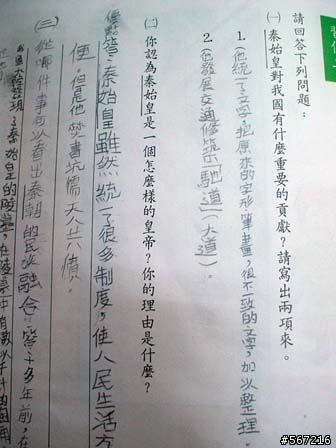 習作一
請回答下列問題：
㈠秦始皇對我國有什麼重要的貢獻？請寫出兩項來。
1. (他統一了文字，把原來的字形筆畫，很不一致的文字，加以整理。
2. (他發展交通修築「馳道」(大道)。
㈡你認為秦始皇是一個怎麼樣的皇帝？你的理由是什麼？
答：秦始皇雖然統一了很多制度，使人民生活方
便，但是他焚書坑儒天人共憤。
㈢從哪件事可以看出秦朝的民族融合？答：十多年前，在
發現了秦始皇的陵墓，在陵墓中有數以千計的
#567216